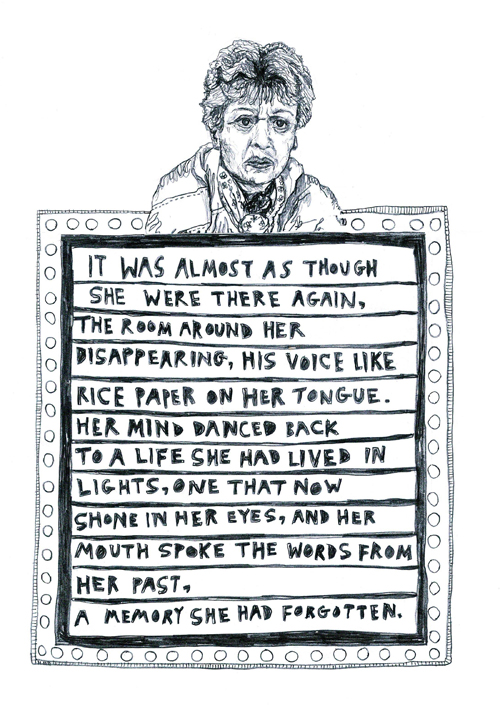 IT WAS ALMOST AS THOUGH
SHE WERE THERE AGAIN,
THE ROOM AROUND HER
DISAPPEARING, HIS VOICE LIKE
RICE PAPER ON HER TONGUE.
HER MIND DANCED BACK
TO A LIFE SHE HAD LIVED IN
LIGHTS, ONE THAT NOW
SHONE IN HER EYES, AND HER
MOUTH SPOKE THE WORDS FROM
HER PAST,
A MEMORY SHE HAD FORGOTTEN.